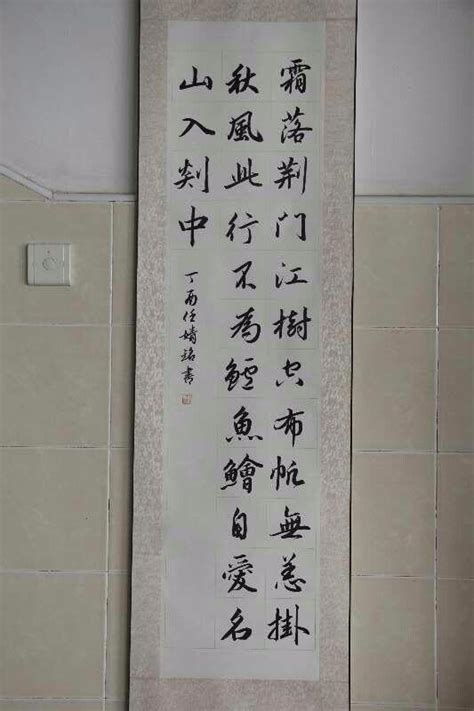 霜落荆门江樹空布帆無恙掛
秋風此行不為鱸魚鱠自愛名
山入剡中
丁酉任婧銘書